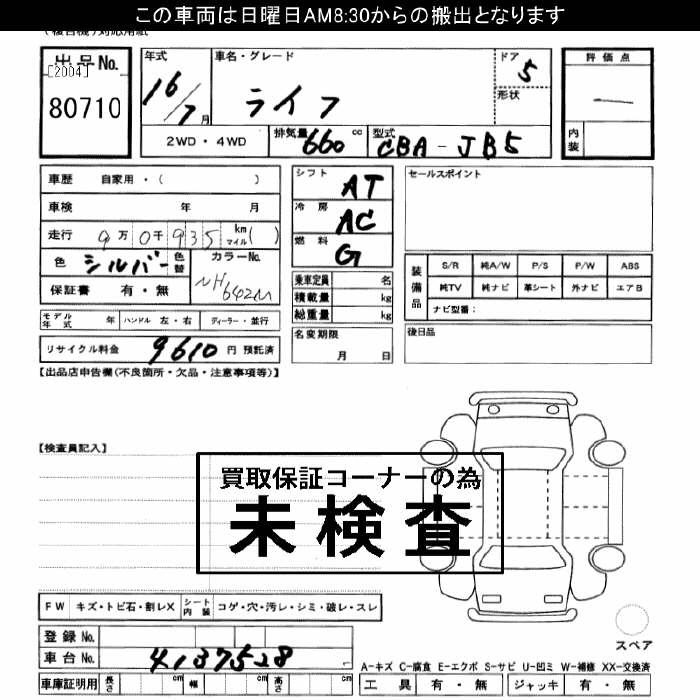 この車両は日曜日AM8:30からの搬出となります
(複合機)対応用紙
出品No.
[2004]
80710
年式
16/7月
車名・グレード
ライフ
ドア
5
形状
評価点
—
内装
2WD・4WD
排気量 660 cc
型式 CBA-JB5
車歴 自家用・( )
車検 年 月
走行 9万0千935 km マイル( )
色 シルバー 色替
カラーNo.
NH642M
保証書 有・無
シフト AT
冷房 AC
燃料 G
乗車定員 名
積載量 kg
総重量 kg
セールスポイント
装備品
S/R 純A/W P/S P/W ABS
純TV 純ナビ 革シート 外ナビ エアB
ナビ型番:
モデル年式 年 ハンドル 左・右 ディーラー・並行
名変期限
月 日
後日品
リサイクル料金 9610 円 預託済
【出品店申告欄(不良箇所・欠品・注意事項等)】
【検査員記入】
買取保証コーナーの為
未検査
FW キズ・トビ石・割レX シート内装 コゲ・穴・汚レ・シミ・破レ・スレ
登録No.
車台No. 4137528
車庫証明用 長さ cm 幅 cm 高さ cm
スペア
A-キズ C-腐食 E-エクボ S-サビ U-凹ミ W-補修 XX-交換済
工具 有・無 ジャッキ 有・無